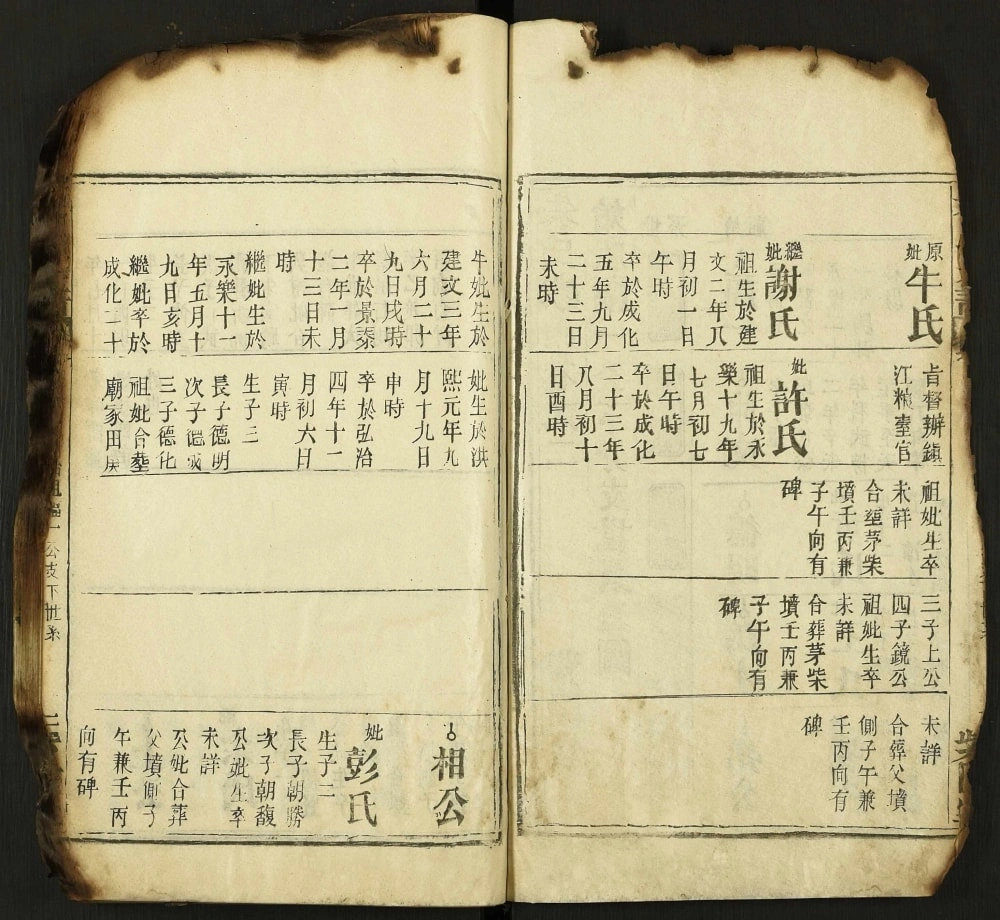 原妣
牛氏
繼妣
謝氏
祖生於建
文二年八
月初一日
午時
卒於成化
五年九月
二十三日
未時
旨督辦鎮
江粮臺官
妣
許氏
祖生於永
樂十九年
七月初七
日午時
卒於成化
二十三年
八月初十
日酉時
祖妣生卒
未詳
合塟茅柴
墳壬丙兼
子午向有
碑
三子上公
四子鏡公
祖妣生卒
未詳
合葬茅柴
墳壬丙兼
子午向有
碑
未詳
合葬父墳
側子午兼
壬丙向有
碑
牛妣生於
建文三年
六月二十
九日戌時
卒於景泰
二年一月
十三日未
時
繼妣生於
永樂十一
年五月十
九日亥時
繼妣卒於
成化二十
妣生於洪
熙元年九
月十九日
申時
卒於弘治
四年十一
月初六日
寅時
生子三
長子德明
次子德威
三子德化
祖妣合塟
廟冢田
相公
妣
彭氏
生子二
長子朝勝
次子朝馥
公妣生卒
未詳
公妣合葬
父墳側子
午兼壬丙
向有碑
公支下世系